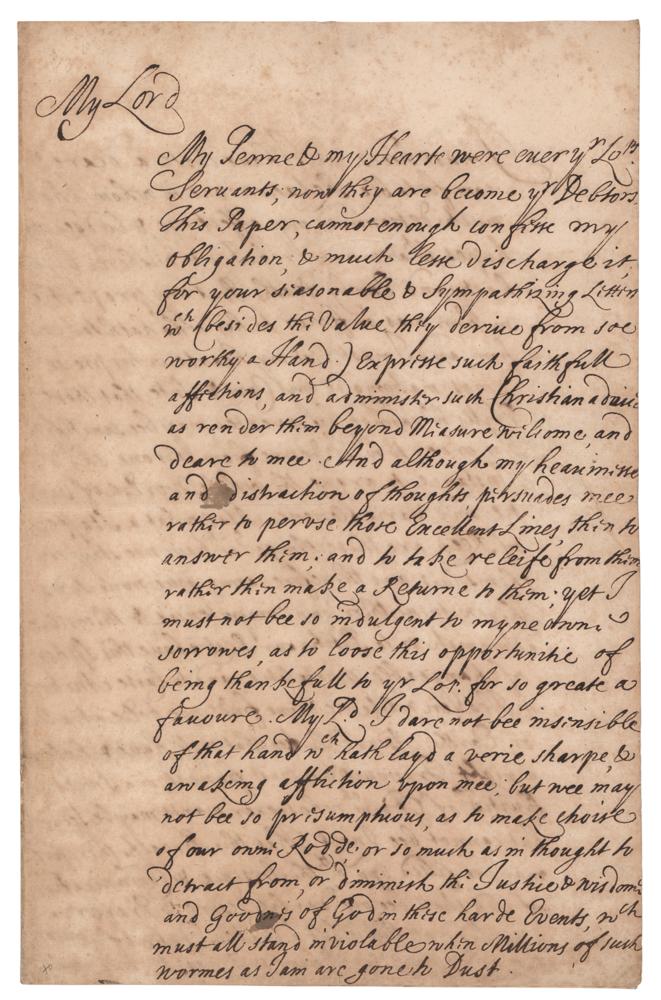 My Lord
My Penne & my Hearte were euer yr Lopps
Servants; now they are become yr Debtors.
This Paper, cannot enough confesse my
obligation, & much lesse discharge it,
for your seasonable & Sympathizing Letters
wch (besides the Value they deriue from soe
worthy a Hand.) Expresse such faithfull
affections, and administer such Christian advice
as render them beyond Measure welcome, and
deare to mee. And although my heauinesse
and distraction of thoughts persuades mee
rather to peruse those Excellent Lines, then to
answer them; and to take releife from them
rather then make a Returne to them; yet I
must not bee so indulgent to myne owne
sorrowes, as to loose this opportunitie of
being thankefull to yr Lop. for so greate a
favoure. My Ld. I dare not bee insensible
of that hand wch hath layd a verie sharpe, &
awaking affliction vpon mee; but wee may
not bee so presumptuous, as to make choise
of our owne Rodde or so much as in thought to
detract from, or diminish the Justice & wisdome
and Goodnes of God in these harde Events, wch
must all stand inviolable when Millions of such
wormes as I am are gone to Dust.